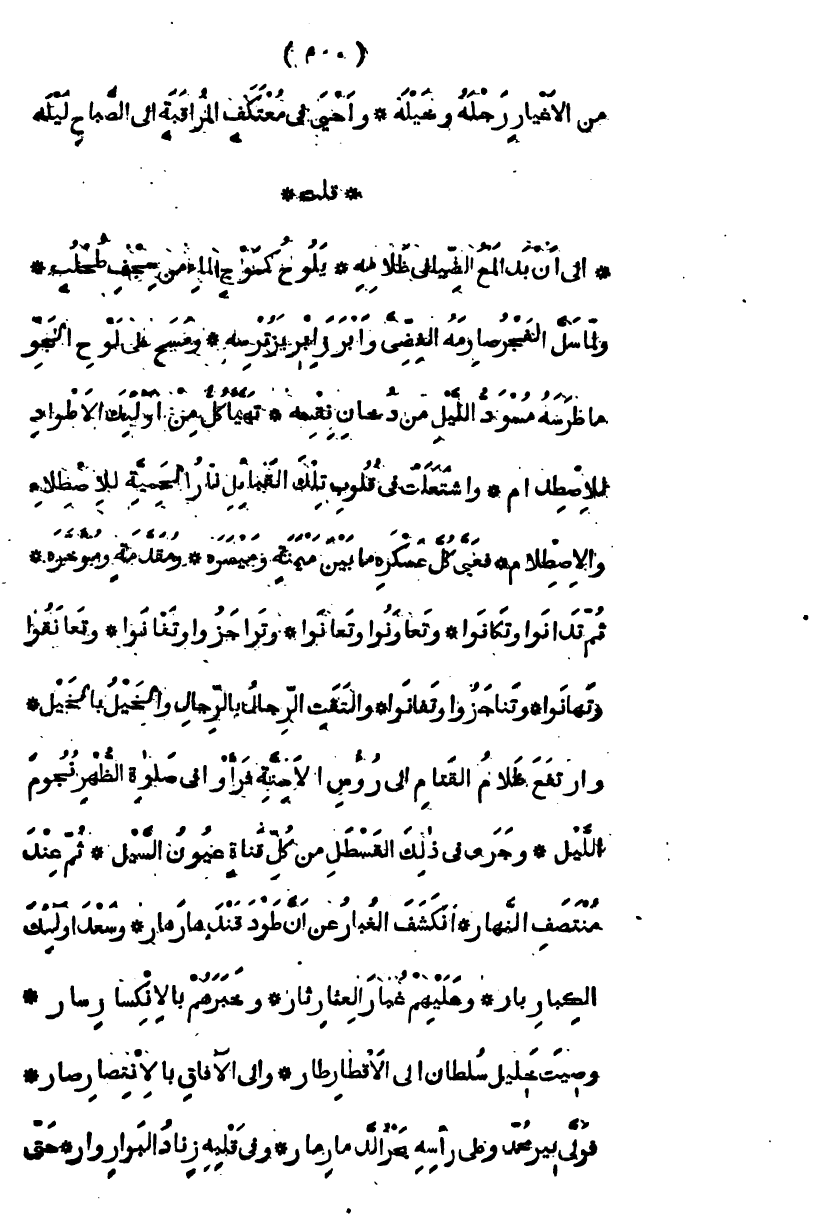 (٢٠٠)
من الاَغْيارِ رَجْلَهُ وخَيْلَهُ * واَحْيَى فى مُعْتَكَفِ المُراقَبَةِ الى الصَّباحِ لَيْلَهُ
* قلت *
* الى اَنْ بَدا لَمْعُ الضِّيا فى ظَلامِهِ * يَلُوحُ كَمَوْجِ الماءِ من سِجْفِ طُحْلُبِ *
ولمّا سَلَّ الفَجْرُ صارِمَهُ الفِضِّىَّ وَاَبْرَزَ اِبْرِيزَ تُرْسِهِ * ومَسَحَ على لَوْحِ الجَوِّ
ما طَرَسَهُ مُسْوَدُّ اللَّيْلِ من دُخانِ نِقْسِهِ * تَهَيَّأَ كُلٌّ مِنْ اُولٰئِكَ الاَطْوادِ
للاِصْطِدامِ * واشْتَعَلَتْ فى قُلُوبِ تِلْكَ القَبائِلِ نارُ الحَمِيَّةِ للاِصْطِلاءِ
والاِصْطِلامِ * فعَبَّى كُلٌّ عَسْكَرَهِ ما بَيْنَ مَيْمَنَةٍ ومَيْسَرَه * ومُقَدَّمَةٍ ومُوَخَّرَه *
ثُمَّ تَدانَوا وتَكانَوا * وتَعاوَنُوا وتَعانَوا * وتَراجَزُوا وتَفانَوا * وتَعانَقُوا
وتَهانَوا * وتَناجَزُوا وتَفانَوا * والتَقَتِ الرِّجالُ بالرِّجالِ والخَيْلُ بالخَيْلِ *
وارتَفَعَ ظَلامُ القَتامِ الى رُؤُسِ الاَجِنَّةِ فَرَأَوا فى صَلٰوةِ الظُّهْرِ نُجُومَ
اللَّيْلِ * وجَرَى فى ذٰلِكَ القَسْطَلِ من كُلِّ قَناةٍ عُيُونُ السَّيْلِ * ثُمَّ عِنْدَ
مُنْتَصَفِ النَّهارِ * اِنكَشَفَ الغُبارُ عن اَنَّ طَوْدَ قَنْدَهارَ هارِ * وسَعْدَ اُولٰئِكَ
الكِبارِ بار * وعَلَيْهِمْ غُبارَ العِثارِ ثار * وخَبَرَهُمْ بالاِنْكِسارِ سار *
وصِيتَ خَلِيل سُلطان الى الاَقْطارِ طار * والى الآفاقِ بالاِنْتِصارِ صار *
فوَلَّى پير محمّد وعلى رأسِهِ بَحْرُ الدَّمارِ مار * وفى قَلْبِهِ زِنادُ البَوارِ وار * حَتّى